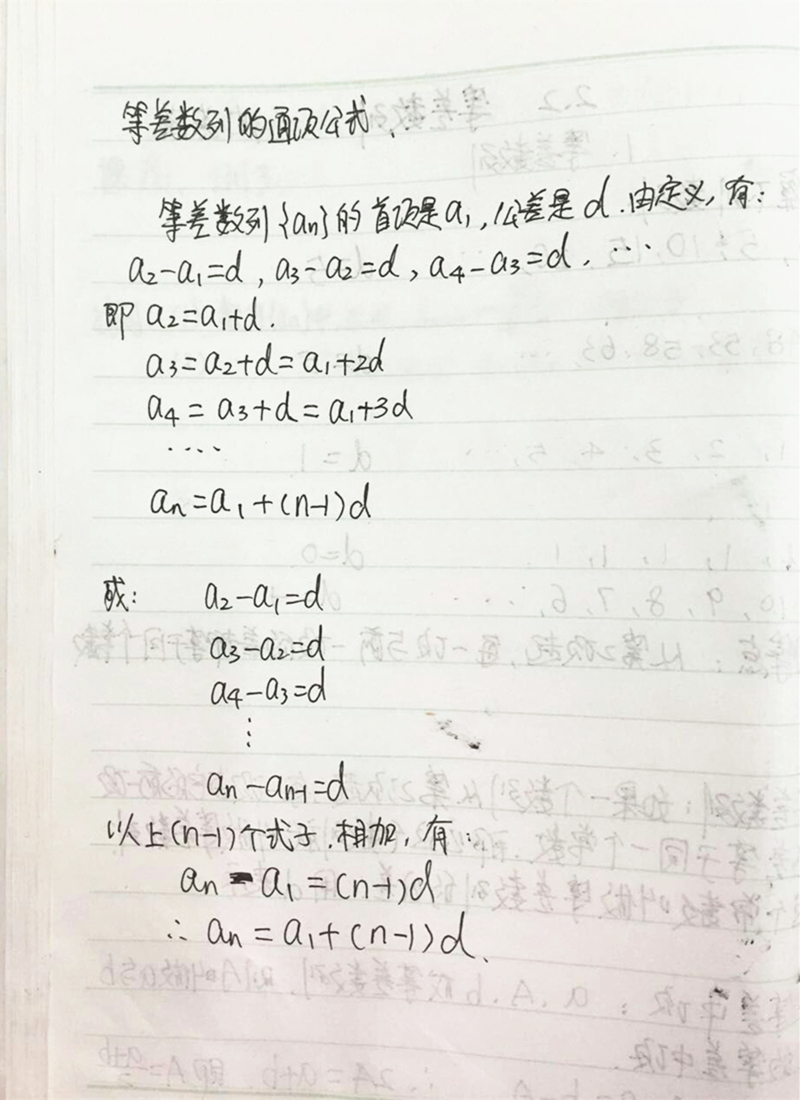 等差数列的通项公式.
等差数列{an}的首项是a1,公差是d.由定义,有:
a2-a1=d,a3-a2=d,a4-a3=d,…
即a2=a1+d.
a3=a2+d=a1+2d
a4=a3+d=a1+3d
····
an=a1+(n-1)d
或: a2-a1=d
a3-a2=d
a4-a3=d
⋮
an-an-1=d
以上(n-1)个式子.相加,有:
an-a1=(n-1)d
∴an=a1+(n-1)d.